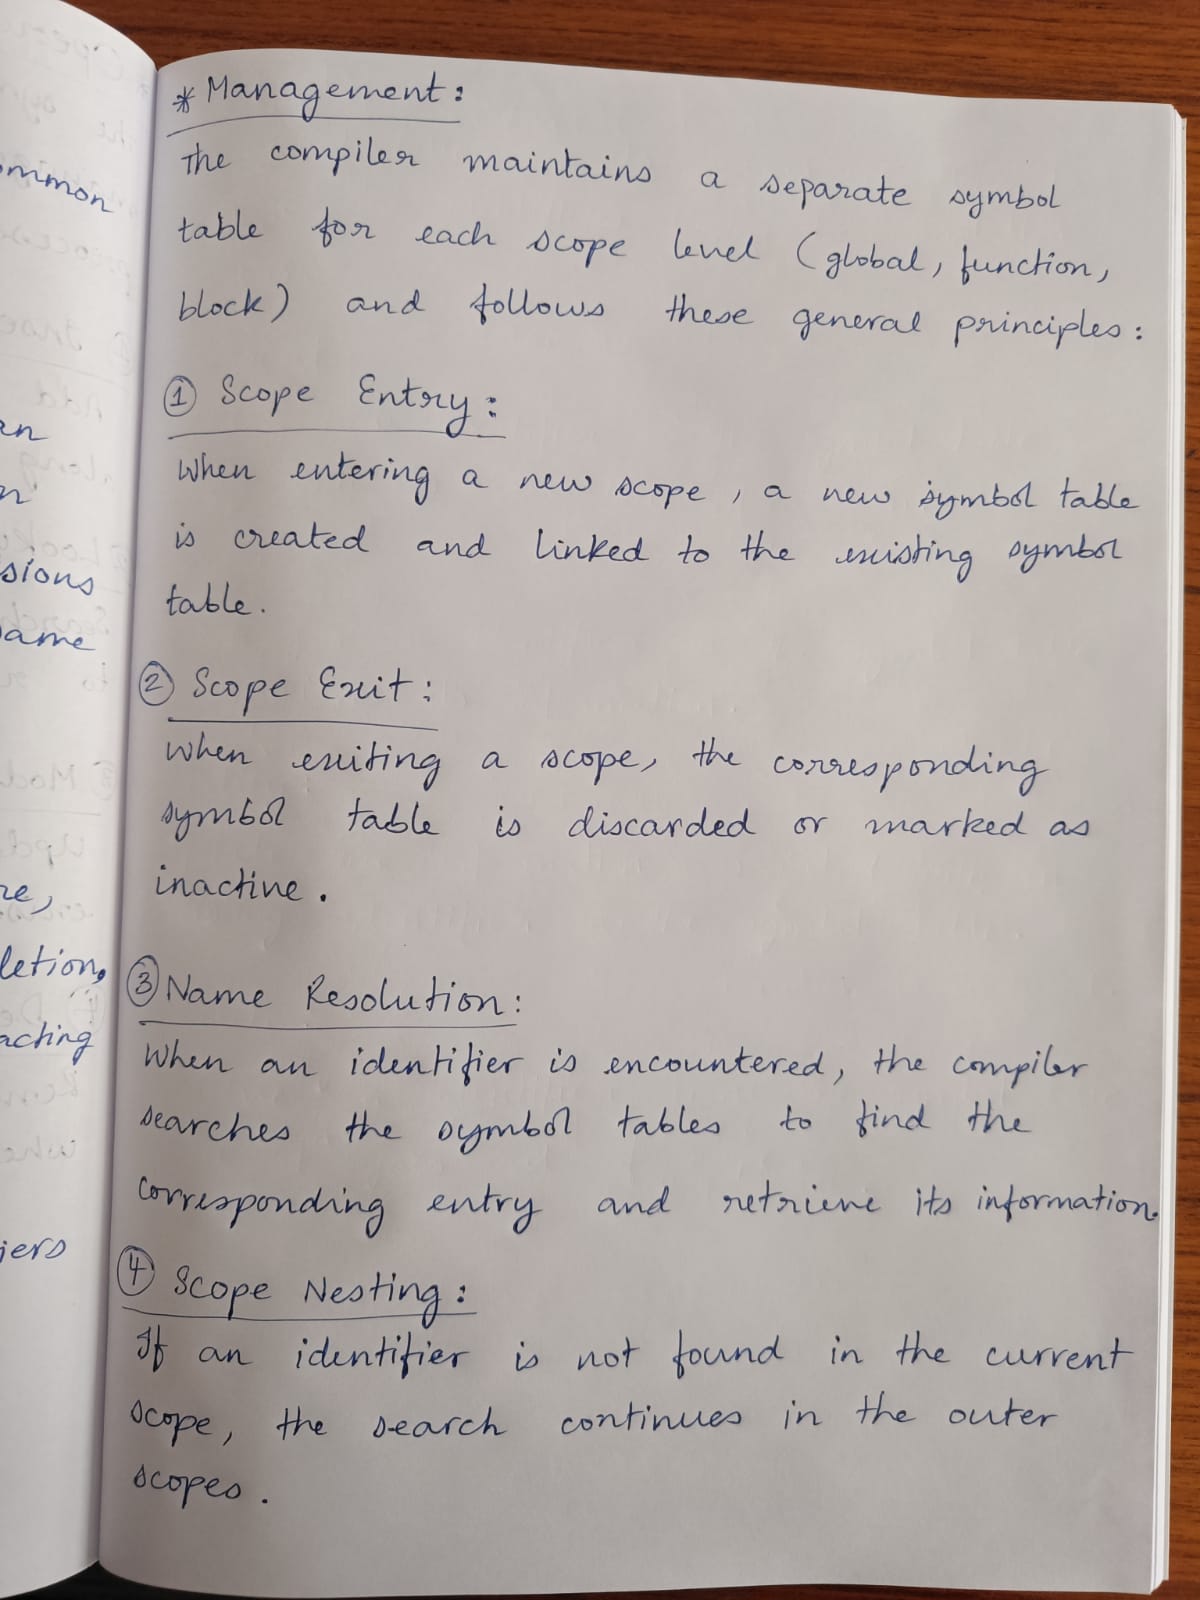 * Management:
The compiler maintains a separate symbol
table for each scope level (global, function,
block) and follows these general principles:
① Scope Entry:
When entering a new scope, a new symbol table
is created and linked to the existing symbol
table.
② Scope Exit:
When exiting a scope, the corresponding
symbol table is discarded or marked as
inactive.
③ Name Resolution:
When an identifier is encountered, the compiler
searches the symbol tables to find the
corresponding entry and retrieve its information.
④ Scope Nesting:
If an identifier is not found in the current
scope, the search continues in the outer
scopes.